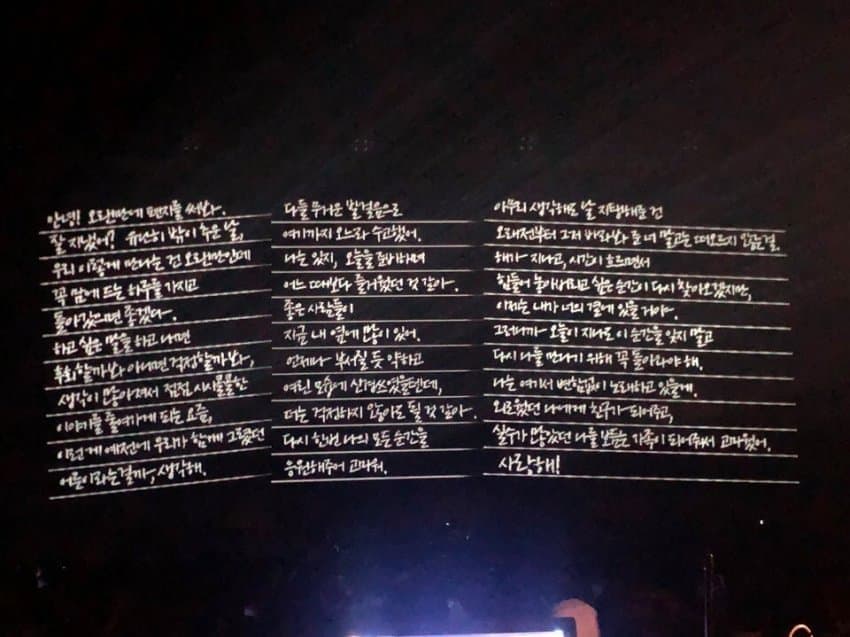 안녕! 오랜만에 편지를 써봐.
잘 지냈어? 유난히 밖이 추운 날,
우리 이렇게 만나는 건 오랜만인데
꼭 맘에 드는 하루를 가지고
돌아갔으면 좋겠다.
하고 싶은 말을 하고 나면
후회할까 봐 아니면 걱정할까 봐,
생각이 많아져서 점점 시시콜콜한
이야기를 줄여가게 되는 요즘,
이런 게 예전에 우리가 함께 그렸던
어른이라는 걸까, 생각해.
다들 무거운 발걸음으로
여기까지 오느라 수고했어.
나는 있지, 오늘을 준비하며
어느 때보다 즐거웠던 것 같아.
좋은 사람들이
지금 내 옆에 많이 있어.
언제나 부서질 듯 약하고
여린 모습에 신경쓰였을텐데,
더는 걱정하지 않아도 될 것 같아.
다시 한번 나의 모든 순간을
응원해주어 고마워.
아무리 생각해도 날 지탱해준 건
오래전부터 그저 바라봐 준 너 말고는 떠오르지 않는걸.
해가 지나고, 시간이 흐르면서
힘들어 놓아버리고 싶은 순간이 다시 찾아오겠지만,
이제는 내가 너의 곁에 있을거야.
그러니까 오늘이 지나도 이 순간을 잊지 말고
다시 나를 만나기 위해 꼭 돌아와야 해.
나는 여기서 변함없이 노래하고 있을게.
외로웠던 나에게 친구가 되어주고,
실수가 많았던 나를 보듬는 가족이 되어줘서 고마웠어.
사랑해!